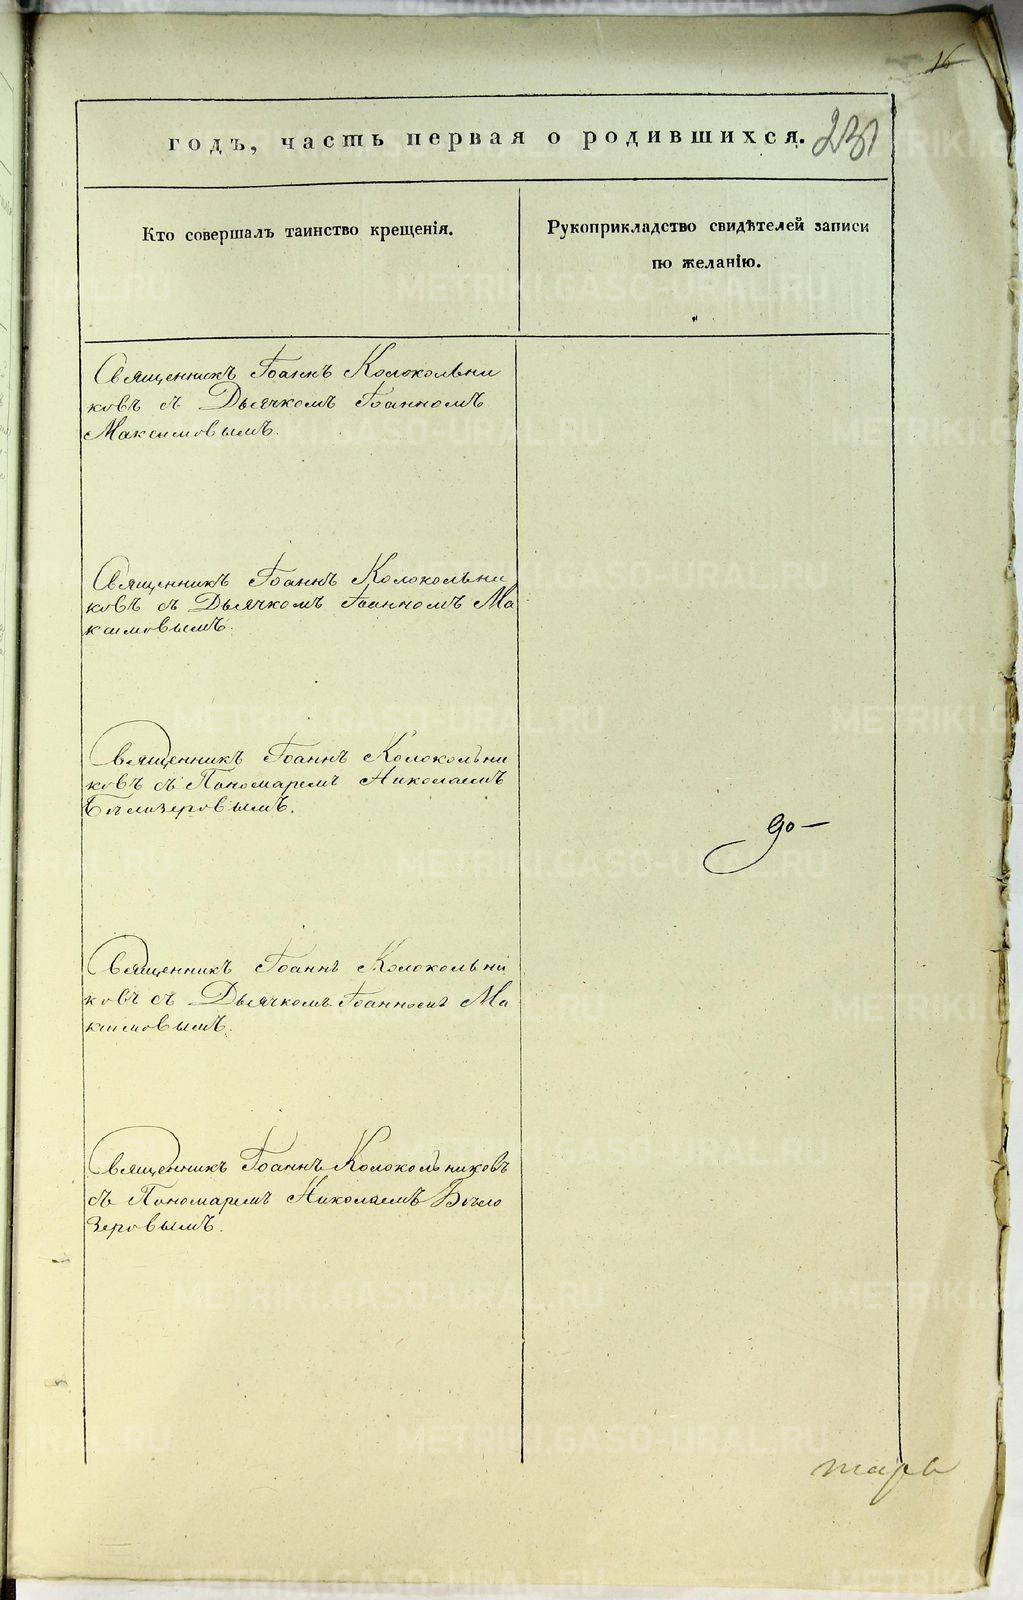 16
годъ, часть первая о родившихся.
Кто совершалъ таинство крещенія.
Рукоприкладство свидѣтелей записи
по желанію.
Священникъ Іоаннъ Колокольни
ковъ съ Дьячкомъ Іоанномъ
Максимовымъ.
Священникъ Іоаннъ Колокольни
ковъ съ Дьячкомъ Іоанномъ Ма
ксимовымъ.
Священникъ Іоаннъ Колокольни
ковъ съ Пономаремъ Николаемъ
Бѣлозеровымъ.
Священникъ Іоаннъ Колокольни
ковъ съ Дьячкомъ Іоанномъ Ма
ксимовымъ.
Священникъ Іоаннъ Колокольниковъ
съ Пономаремъ Николаемъ Бѣло
зеровымъ.
METRIKI.GASO-URAL.RU